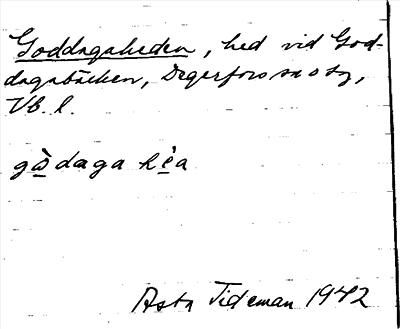 Goddagaheden, hed vid God-
dagabäcken, Degerfors sn o tg,
Vb. l.
gò̲daga hè̲a
Asta Tideman 1942